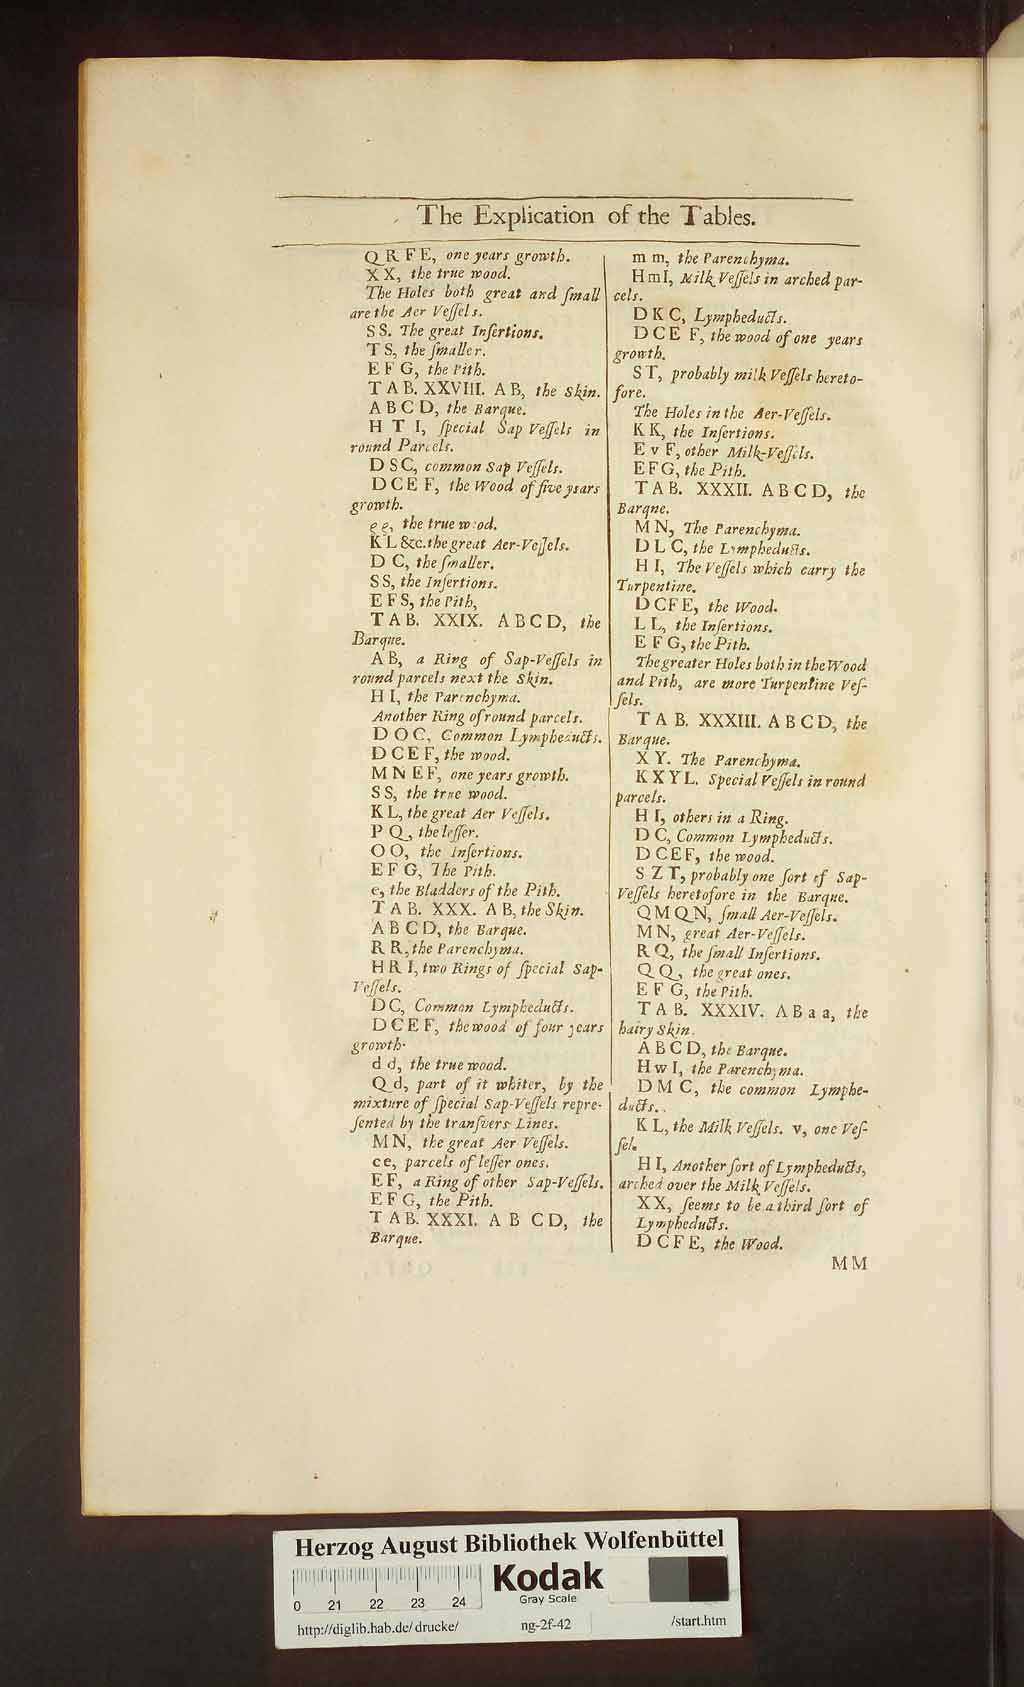 The Explication of the Tables.
Q R F E, one years growth.
X X, the true wood.
The Holes both great and ſmall
are the Aer Veſſels.
S S. The great Inſertions.
T S, the ſmaller.
E F G, the Pith.
T A B. XXVIII. A B, the Skin.
A B C D, the Barque.
H T I, ſpecial Sap Veſſels in
round Parcels.
D S C, common Sap Veſſels.
D C E F, the Wood of five ysars
growth.
e e, the true wood.
K L &c. the great Aer-Veſſels.
D C, the ſmaller.
S S, the Inſertions.
E F S, the Pith,
T A B. XXIX. A B C D, the
Barque.
A B, a Ring of Sap-Veſſels in
round parcels next the Skin.
H I, the Parenchyma.
Another Ring of round parcels.
D O C, Common Lympheducts.
D C E F, the wood.
M N E F, one years growth.
S S, the true wood.
K L, the great Aer Veſſels.
P Q, the leſſer.
O O, the Inſertions.
E F G, The Pith.
e, the Bladders of the Pith.
T A B. XXX. A B, the Skin.
A B C D, the Barque.
R R, the Parenchyma.
H R I, two Rings of ſpecial Sap-
Veſſels.
D C, Common Lympheducts.
D C E F, the wood of four years
growth.
d d, the true wood.
Q d, part of it whiter, by the
mixture of ſpecial Sap-Veſſels repre-
ſented by the tranſvers Lines.
M N, the great Aer Veſſels.
c e, parcels of leſſer ones.
E F, a Ring of other Sap-Veſſels.
E F G, the Pith.
T A B. XXXI. A B C D, the
Barque.
m m, the Parenchyma.
H m I, Milk Veſſels in arched par-
cels.
D K C, Lympheducts.
D C E F, the wood of one years
growth.
S T, probably milk Veſſels hereto-
fore.
The Holes in the Aer-Veſſels.
K K, the Inſertions.
E v F, other Milk-Veſſels.
E F G, the Pith.
T A B. XXXII. A B C D, the
Barque.
M N, The Parenchyma.
D L C, the Lympheducts.
H I, The Veſſels which carry the
Turpentine.
D C F E, the Wood.
L L, the Inſertions.
E F G, the Pith.
The greater Holes both in the Wood
and Pith, are more Turpentine Veſ-
ſels.
T A B. XXXIII. A B C D, the
Barque.
X Y. The Parenchyma.
K X Y L. Special Veſſels in round
parcels.
H I, others in a Ring.
D C, Common Lympheducts.
D C E F, the wood.
S Z T, probably one ſort of Sap-
Veſſels heretofore in the Barque.
Q M Q N, ſmall Aer-Veſſels.
M N, great Aer-Veſſels.
R Q, the ſmall Inſertions.
Q Q, the great ones.
E F G, the Pith.
T A B. XXXIV. A B a a, the
hairy Skin.
A B C D, the Barque.
H w I, the Parenchyma.
D M C, the common Lymphe-
ducts.
K L, the Milk Veſſels. v, one Veſ-
ſel.
H I, Another ſort of Lympheducts,
arched over the Milk Veſſels.
X X, ſeems to be a third ſort of
Lympheducts.
D C F E, the Wood.
M M
Herzog August Bibliothek Wolfenbüttel
Kodak
Gray Scale
0 21 22 23 24
http://diglib.hab.de/drucke/ ng-2f-42 /start.htm